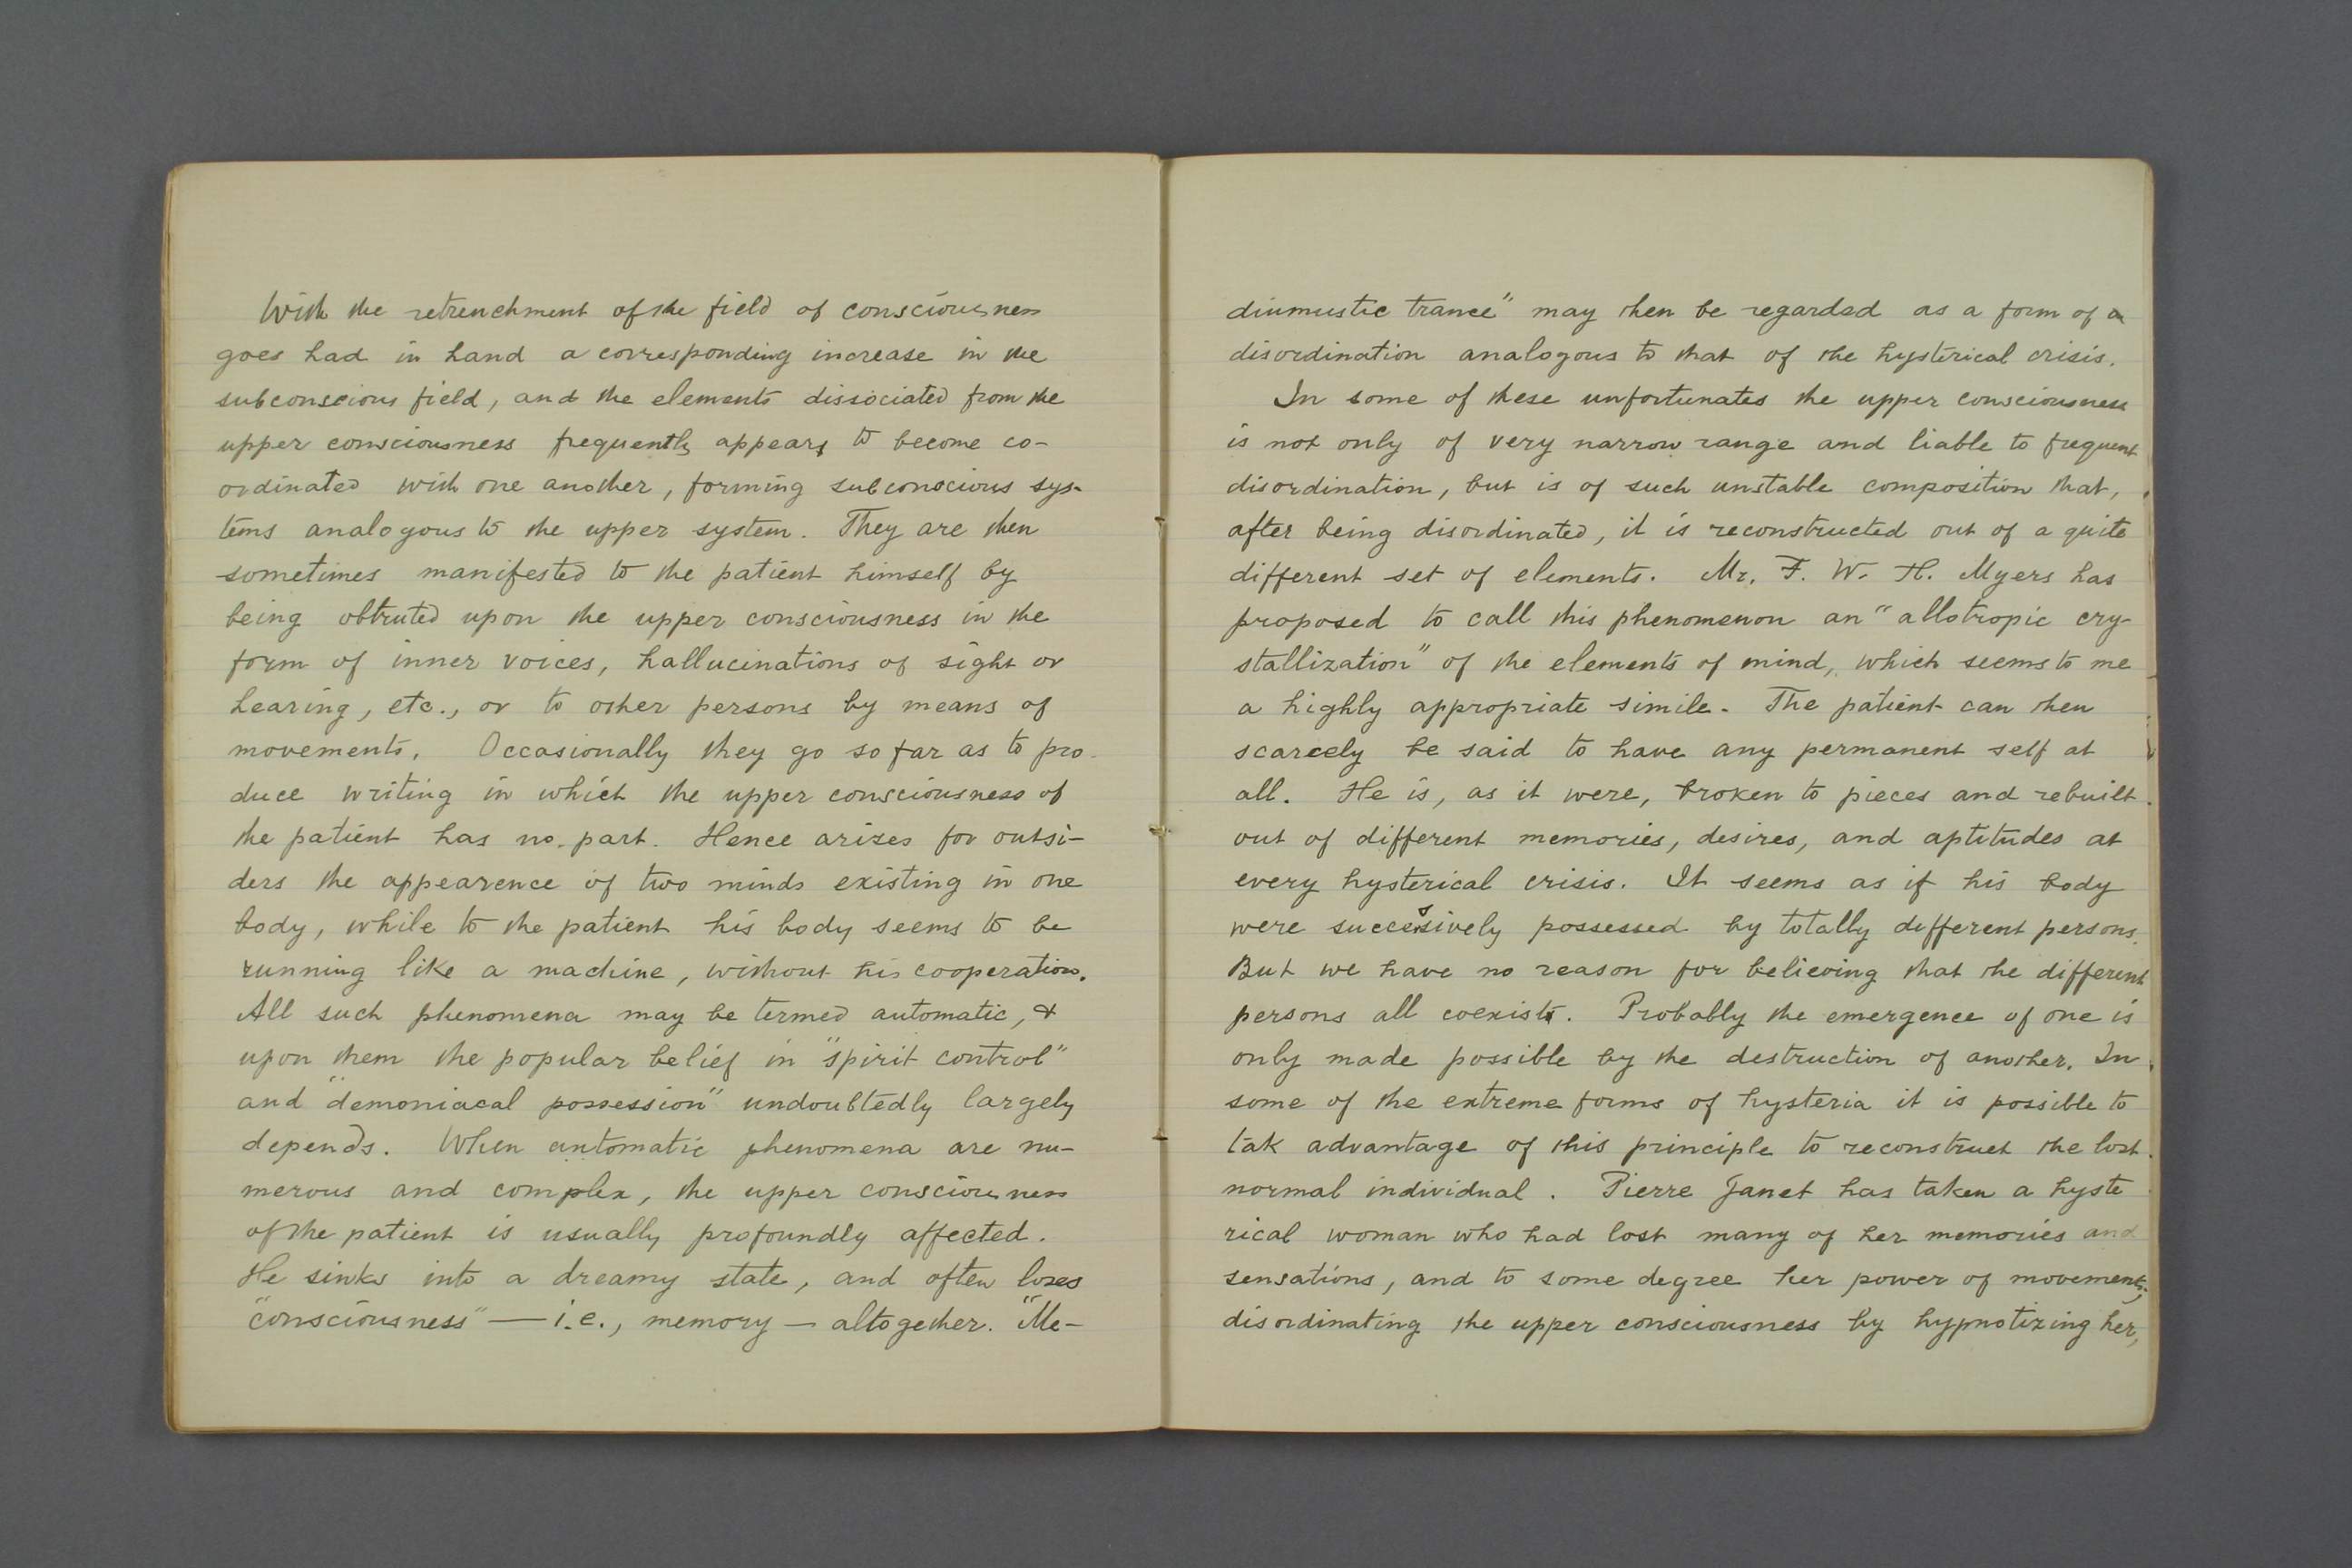 With the retrenchment of the field of consciousness
goes had in hand a corresponding increase in the
subconscious field, and the elements dissociated from the
upper consciousness frequently appears to become co-
ordinated with one another, forming subconscious sys-
tems analogous to the upper system. They are then
sometimes manifested to the patient himself by
being obtruted upon the upper consciousness in the
form of inner voices, hallucinations of sight or
hearing, etc., or to other persons by means of
movements. Occasionally they go so far as to pro-
duce writing in which the upper consciousness of
the patient has no part. Hence arises for outsi-
ders the appearence of two minds existing in one
body, while to the patient his body seems to be
running like a machine, without his cooperation.
All such phenomena may be termed automatic, &
upon them the popular belief in "spirit control"
and "demoniacal possession" undoubtedly largely
depends. When automatic phenomena are nu-
merous and complex, the upper consciousness
of the patient is usually profoundly affected.
He sinks into a dreamy state, and often loses
"consciousness" — i.e., memory — altogether. "Me-
diumustic trance" may then be regarded as a form of a
disordination analogous to that of the hysterical crisis.
In some of these unfortunates the upper consciousness
is not only of very narrow range and liable to frequent
disordination, but is of such unstable composition that,
after being disordinated, it is reconstructed out of a quite
different set of elements. Mr. F. W. H. Myers has
proposed to call this phenomenon an "allotropic cry-
stallization" of the elements of mind, which seems to me
a highly appropriate simile. The patient can then
scarcely be said to have any permanent self at
all. He is, as it were, broken to pieces and rebuilt
out of different memories, desires, and aptitudes at
every hysterical crisis. It seems as if his body
were successively possessed by totally different persons.
But we have no reason for believing that the different
persons all coexist. Probably the emergence of one is
only made possible by the destruction of another. In
some of the extreme forms of hysteria it is possible to
tak advantage of this principle to reconstruct the lost
normal individual. Pierre Janet has taken a hyste
rical woman who had lost many of her memories and
sensations, and to some degree her power of movement,
disordinating the upper consciousness by hypnotizing her,